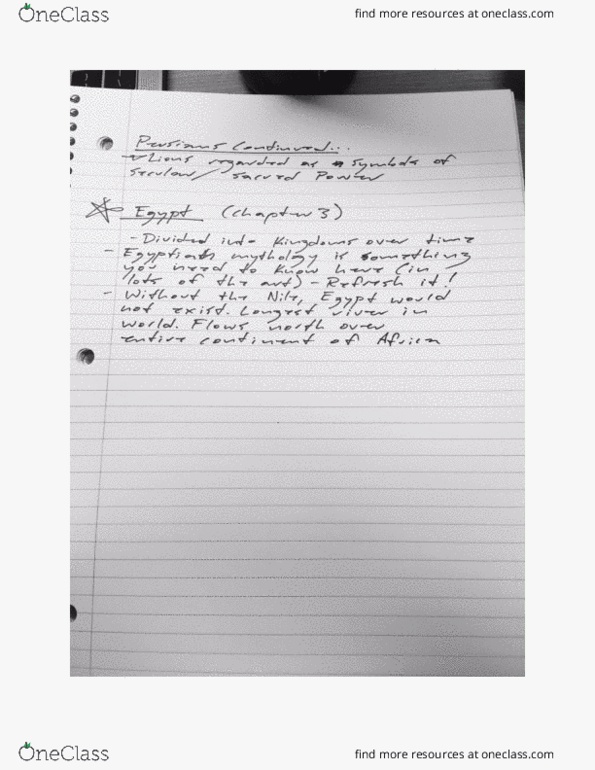 OneClass
find more resources at oneclass.com
Persians Continued...
- Lions regarded as a symbol of
secular/ sacred Power
Egypt (Chapter 3)
- Divided into Kingdoms over time
- Egyptian mythology is something
you need to know here (in
lots of the art) - Refresh it!
- Without the Nile, Egypt would
not exist. Longest river in
world. Flows north over
entire continent of Africa
OneClass
find more resources at oneclass.com